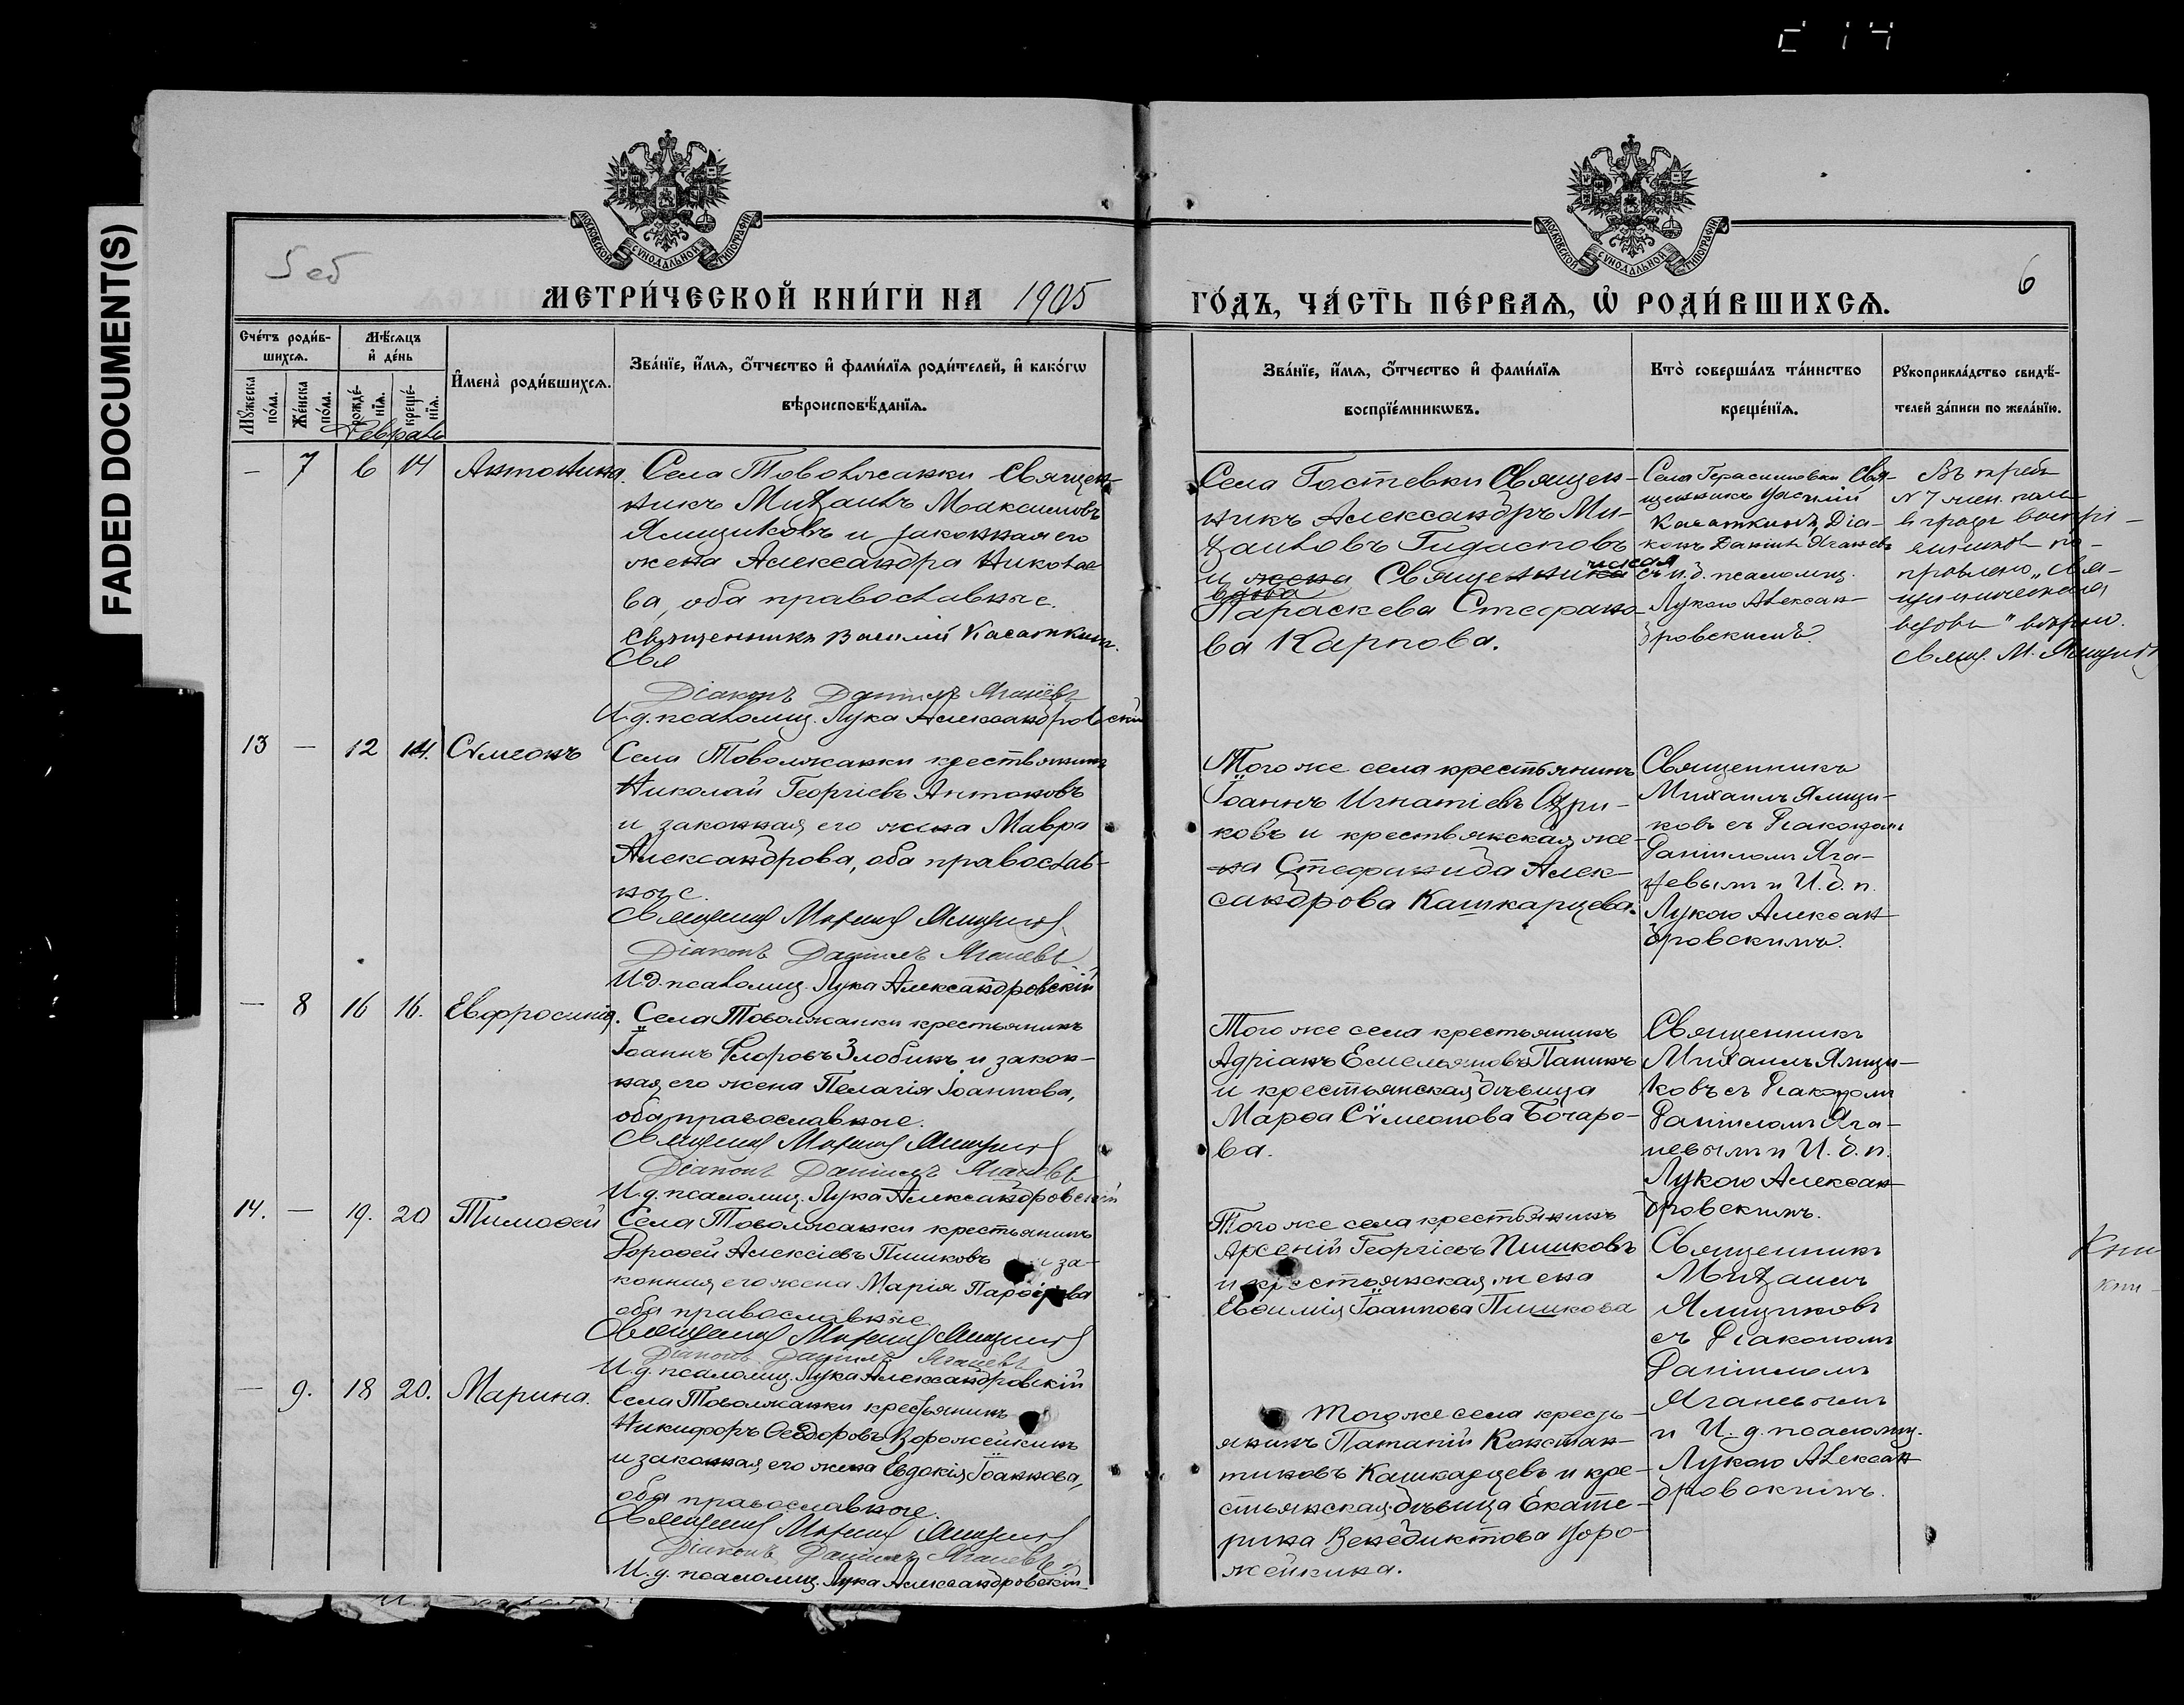 FADED DOCUMENT(S)
МОСКОВСКОЙ СУНОДАЛЬНОЙ ТИПОГРАФІИ
МОСКОВСКОЙ СУНОДАЛЬНОЙ ТИПОГРАФІИ
6
МЕТРИ́ЧЕСКОЙ КНИ́ГИ НА 1905
ГО́ДЪ, ЧА́СТЬ ПЕ́РВАѦ, Ѡ РОДИ́ВШИХСѦ.
Сче́тъ роди́в-
шихсѧ.
Мꙋ́жеска по́ла.
Же́нска по́ла.
Мѣ́сѧцъ
и҆ де́нь
рожде́-
нїѧ.
креще́-
нїѧ.
И҆мена̀ роди́вшихсѧ.
Зва́нїе, и҆́мѧ, ѻ҆́тчество и҆ фами́лїѧ роди́телей, и҆ како́гѡ
вѣроисповѣ́данїѧ.
Зва́нїе, и҆́мѧ, ѻ҆́тчество и҆ фами́лїѧ
воспрїе́мникѡвъ.
Кто̀ соверша́лъ та́инство
креще́нїѧ.
Рꙋкоприкла́дство свидѣ́-
телей за́писи по жела́нїю.
Февраль
— 7 6 14 Антонина.
Села Товолжанки Священ-
никъ Михаилъ Максимовъ
Ямщиковъ и законная его
жена Александра Никола-
ва, оба православные.
Священникъ Василій Касаткинъ.
Свя
Діаконъ Даніилъ Яганевъ
И.д. псаломщ. Лука Александровскій
Села Гостевки Священ-
никъ Александръ Ми-
хаиловъ Гидасповъ
и жена Священническая
вдова
Параскева Стефано-
ва Карпова.
Села Герасимовки Свя-
щенникъ Василій
Касаткинъ, Діа-
конъ Даніилъ Яганевъ
съ и.д. псаломщ.
Лукою Алексан-
дровскимъ.
"вдова" вѣрно.
Свящ. М. Ямщик
13 — 12 14. Сѵмеонъ
Села Товолжанки крестьянинъ
Николай Георгіевъ Антоновъ
и законная его жена Мавра
Александрова, оба православ-
ные.
Священникъ Михаилъ Ямщиковъ
Діаконъ Даніилъ Яганевъ
И.д. псаломщ. Лука Александровскій
Того же села крестьянинъ
Іоаннъ Игнатіевъ
ковъ и крестьянская же-
на Стефанида Алек-
сандрова Кашкарцева.
Священникъ
Михаилъ Ямщи-
ковъ съ Діакономъ
Даніиломъ Яга-
невымъ и И.д.п.
Лукою Алексан-
дровскимъ.
— 8 16 16. Евфросинія.
Села Товолжанки крестьянинъ
Іоаннъ Флоровъ Злобинъ и закон-
ная его жена Пелагія Іоаннова,
оба православные.
Священникъ Михаилъ Ямщиковъ
Діаконъ Даніилъ Яганевъ
И.д. псаломщ. Лука Александровскій
Того же села крестьянинъ
Адріанъ Емельяновъ Панинъ
и крестьянская дѣвица
Марѳа Сѵмеонова Бочаро-
ва.
Священникъ
Михаилъ Ямщи-
ковъ съ Діакономъ
Даніиломъ Яга-
невымъ и И.д.п.
Лукою Алексан-
дровскимъ.
14. — 19. 20 Тимоѳей
Села Товолжанки крестьянинъ
Дороѳей Алексіевъ Пишковъ и за-
конная его жена Марія
оба православные
Священникъ Михаилъ Ямщиковъ
Діаконъ Даніилъ Яганевъ
И.д. псаломщ. Лука Александровскій
Того же села крестьянинъ
Арсеній Георгіевъ Пишковъ
и крестьянская жена
Евѳимія Іоаннова Пишкова
Священникъ
Михаилъ
Ямщиковъ
съ Діакономъ
Даніиломъ
Яганевымъ
и И.д. псаломщ.
Лукою Алексан-
дровскимъ.
— 9. 18 20. Марина.
Села Товолжанки крестьянинъ
Никифоръ Ѳеодоровъ Ворожейкинъ
и законная его жена Евдокія Іоаннова,
оба православные.
Священникъ Михаилъ Ямщиковъ
Діаконъ Даніилъ Яганевъ
И.д. псаломщ. Лука Александровскій
Того же села кресть-
янинъ Патапій Констан-
тиновъ Кашкарцевъ и кре-
стьянская дѣвица Екате-
рина Венедиктова Воро-
жейкина.